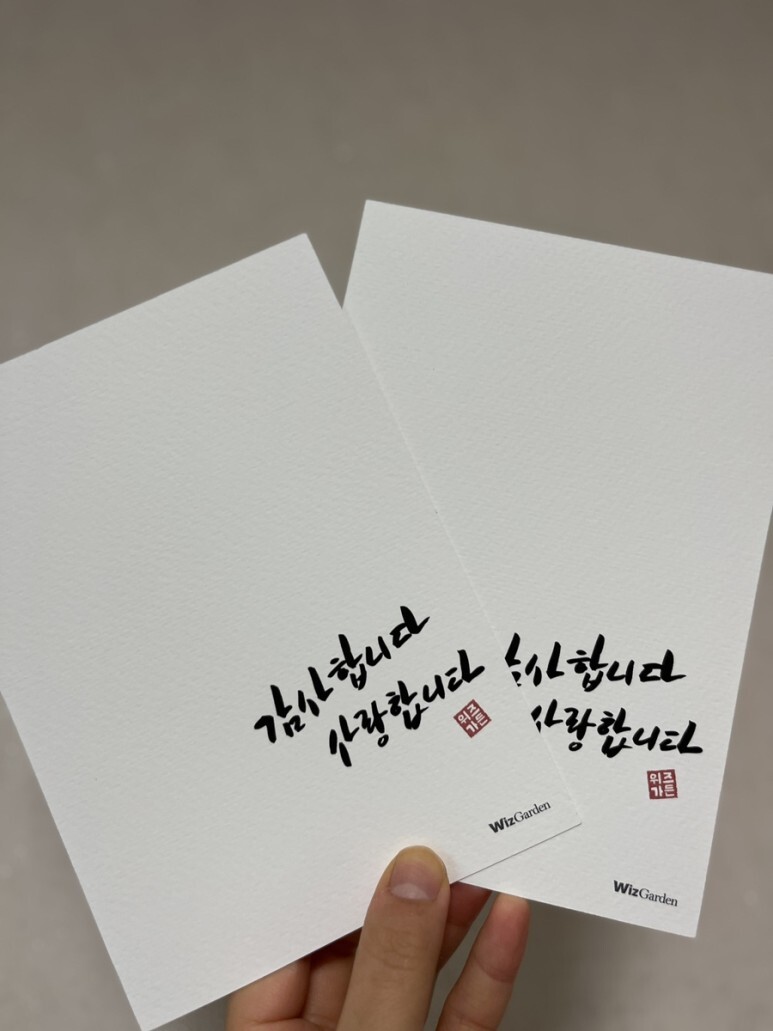 감사합니다
사랑합니다
위즈
가든
WizGarden
사합니다
사랑합니다
위즈
가든
WizGarden